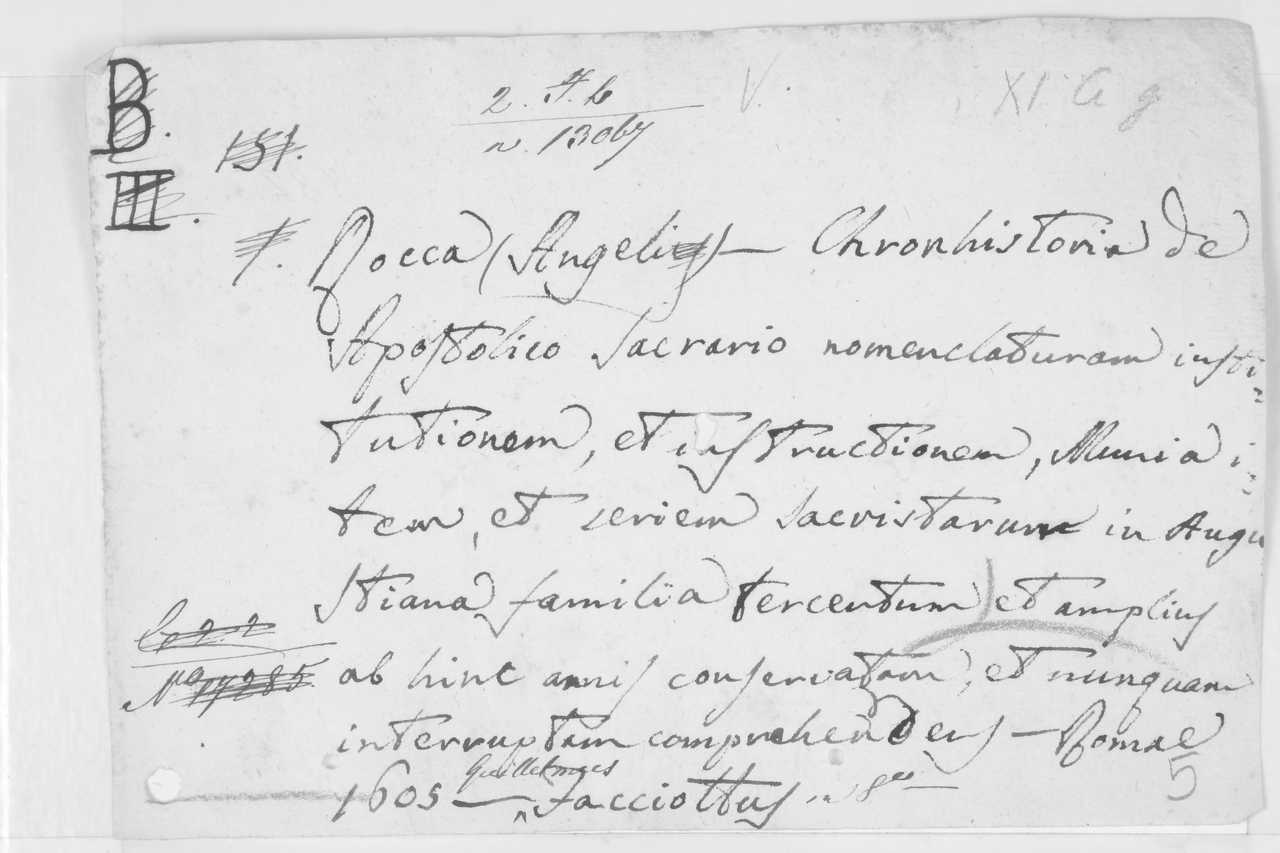 B.
III.
151.
2. H. b
n. 13067
V.
XI G g
Rocca (Angeli) — Chronhistoria de
Apostolico Sacrario nomenclaturam insti=
tutionem, et instructionem, Munia i=
tem, et seriem Sacristarum in Augu
stiana familia tercentum et amplius
ab hinc annis conservatam, et nunquam
interruptam comprehendens — Romae
1605 — Guillelmus Facciottus in 8°
Nº 17285
5